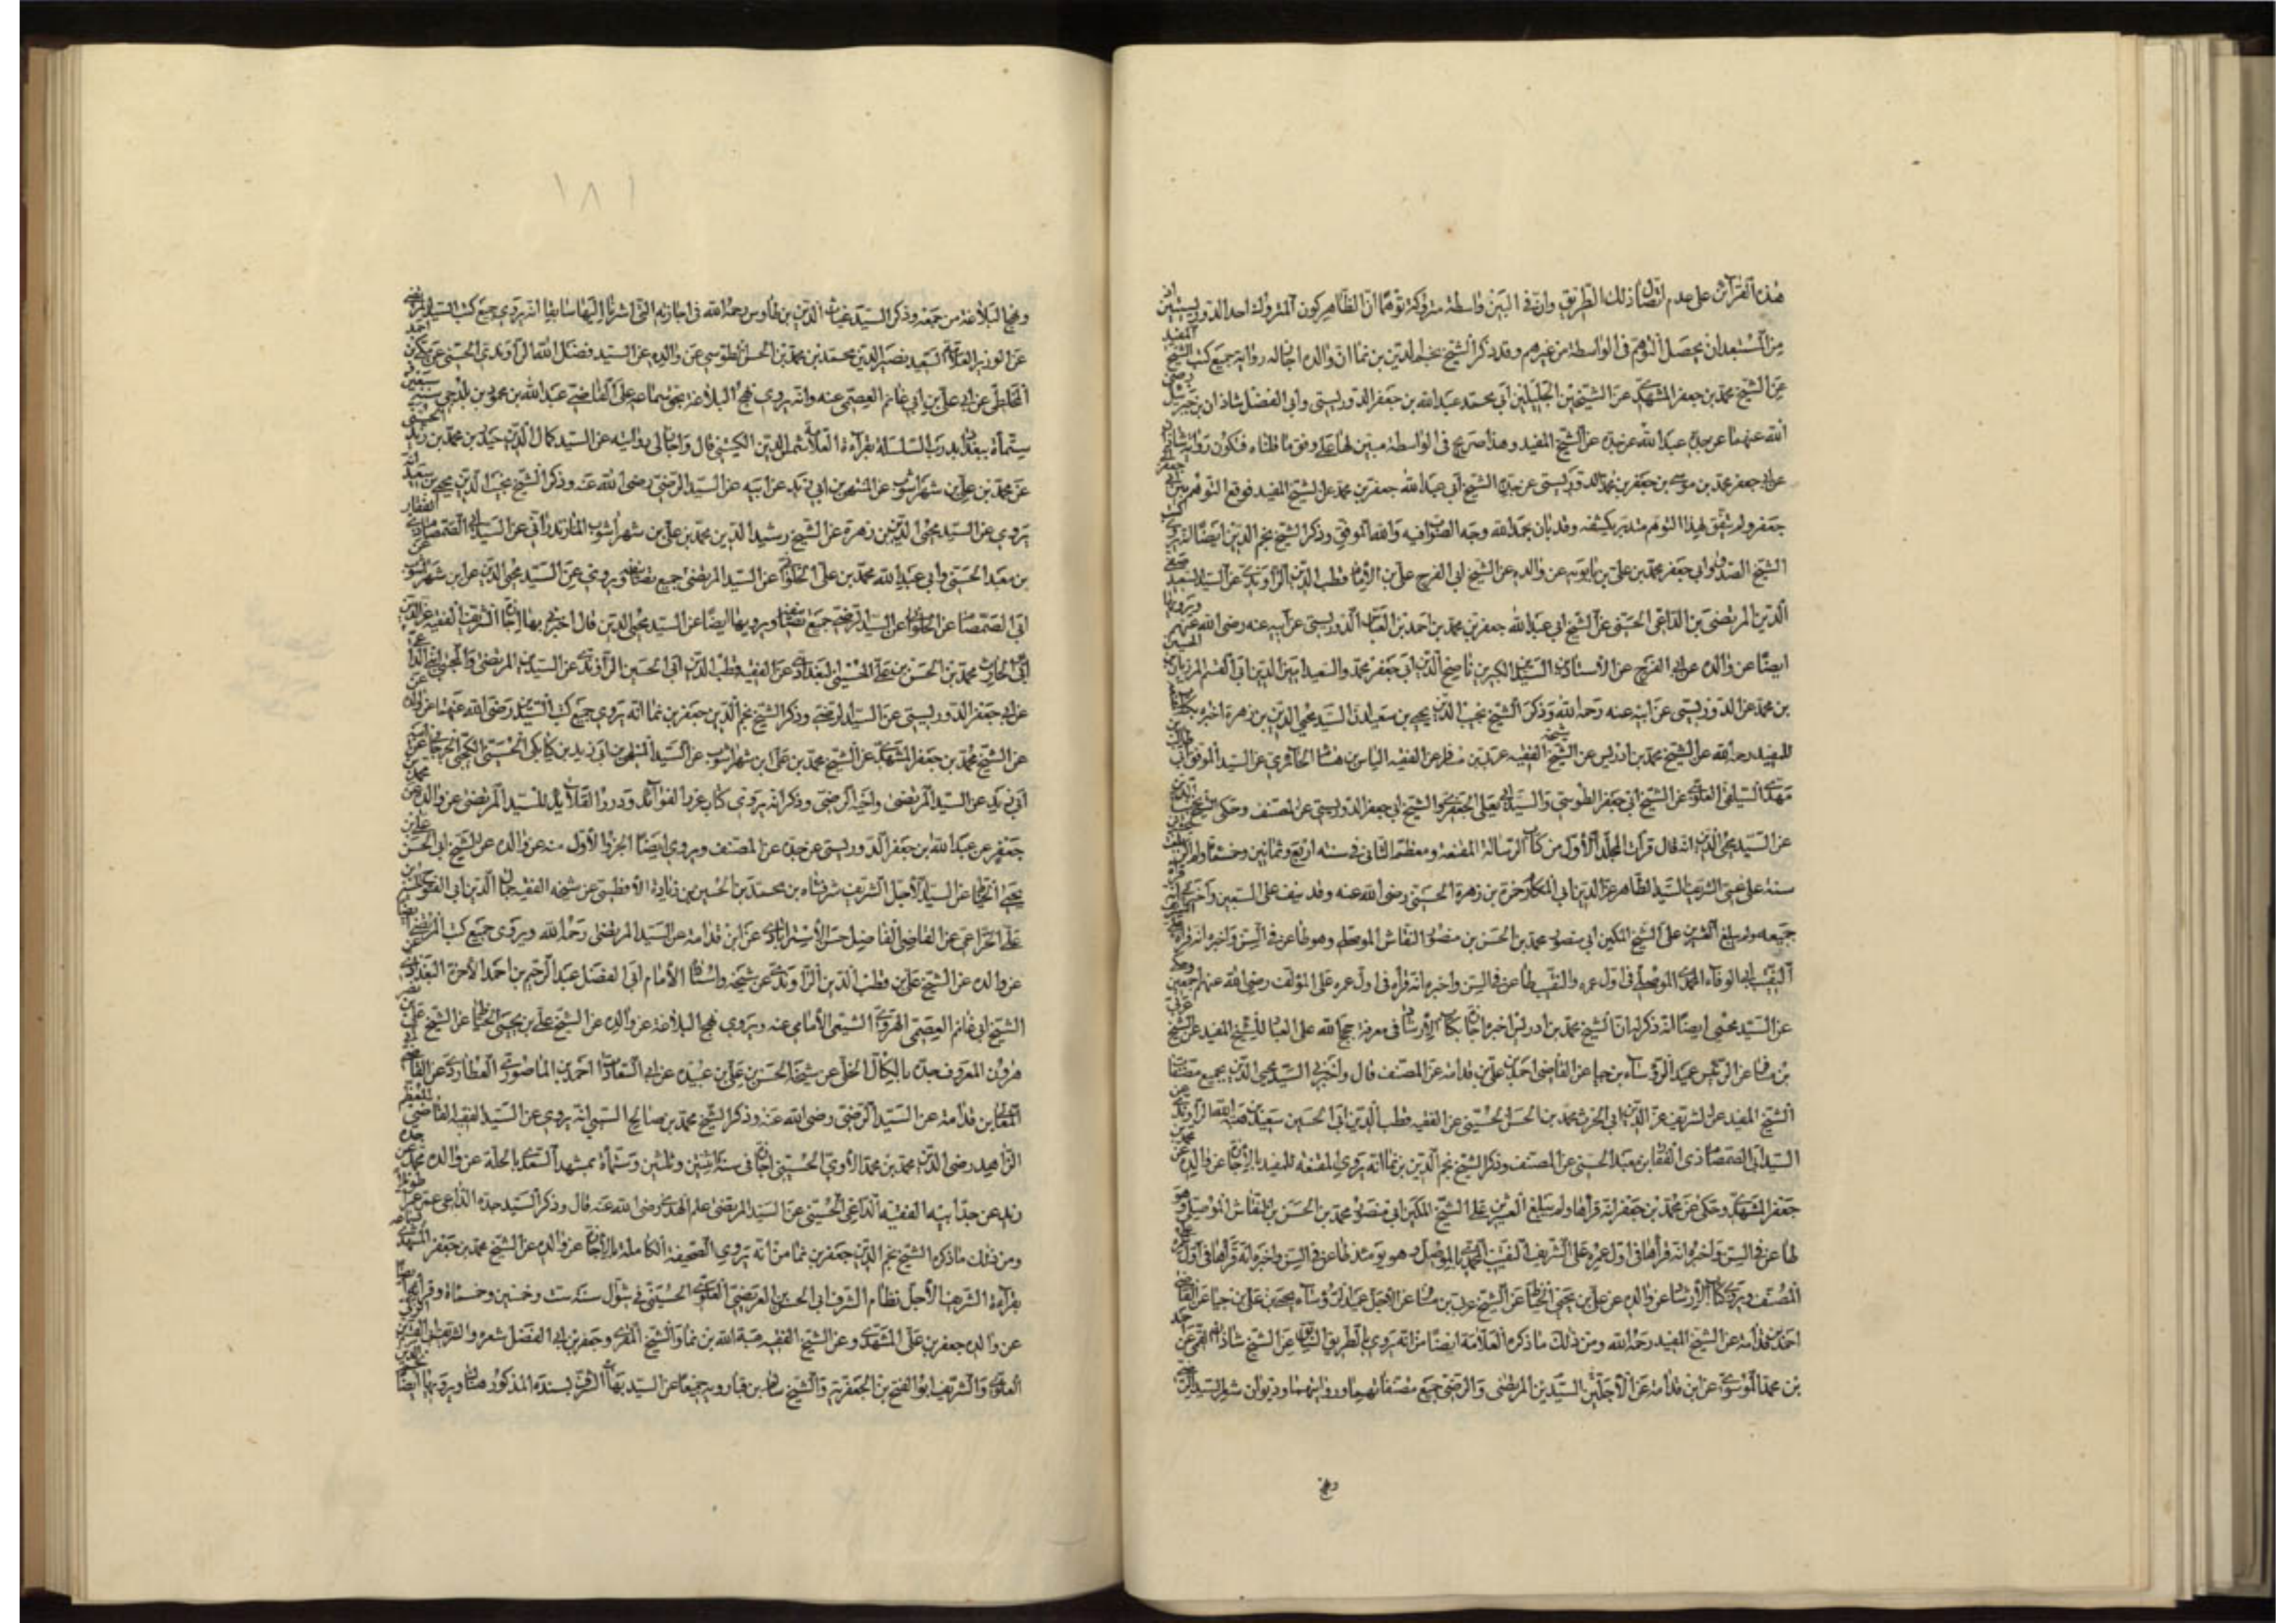 هذه القرائن على عدم اتصال ذلك الطريق وان في البين واسطة متروكة توهما ان الظاهر كون المتروك احد الدوريستيين اذ
من المستبعد ان يحصل التوهم في الواسطة من غيرهم وقد ذكر الشيخ نجم الدين بن نما ان والده اجاز له رواية جميع كتب الشيخ المفيد
عن الشيخ محمد بن جعفر المشهدي عن الشيخين الجليلين ابي محمد عبد الله بن جعفر الدوريستي وابي الفضل شاذان بن جبرئيل رضي
الله عنهما عن جده عبد الله عن جده عن الشيخ المفيد وهذا صريح في الواسطة مبين لها على وفق ما قلناه فتكون رواية شاذان
عن ابي جعفر محمد بن موسى بن جعفر بن محمد الدوريستي عن جده الشيخ ابي عبد الله جعفر بن محمد عن الشيخ المفيد فوقع التوهم بين ابي جعفر
جعفر ولم يتفق لهذا التوهم متدبر يكشفه وقد بان بحمد الله وجه الصواب فيه والله الموفق وذكر الشيخ نجم الدين ايضا انه يروي
الشيخ الصدوق ابي جعفر محمد بن علي بن بابويه عن والده عن الشيخ ابي الفرج علي بن الامام قطب الدين الراوندي عن السيد السعيد صفي
الدين المرتضى بن الداعي الحسني عن الشيخ ابي عبد الله جعفر بن محمد بن احمد بن العباس الدوريستي عن ابيه عنه رضي الله عنهم ويرويها
ايضا عن والده عن ابي الفرج عن الاستادين السيدين الكبيرين ناصح الدين ابي جعفر محمد والسعيد امين الدين ابي القسم المرزبان ابني الحسين
بن محمد عن الدوريستي عن ابيه عنه رحمه الله وذكر الشيخ نجيب الدين يحيى بن سعيد ان السيد محيي الدين بن زهرة اخبره بكتاب
للمفيد رحمه الله عن الشيخ محمد بن ادريس عن شيخه الفقيه عربي بن مسافر عن الفقيه الياس بن هشام الحائري عن السيد الموفق ابي طالب بن
مهدي السيلقي العلوي عن الشيخ ابي جعفر الطوسي والسيد ابي يعلى الجعفري والشيخ ابي جعفر الدوريستي عن المصنف وحكى الشيخ نجيب الدين
عن السيد محيي الدين انه قال قرات المجلد الاول من كتاب الرسالة المقنعة ومعظم الثاني في سنة اربع وثمانين وخمسمائة ولم ابلغ العشرين
سنة على عمي الشريف السيد الطاهر عز الدين ابي المكارم حمزة بن زهرة الحسيني رضي الله عنه وقد نيف على السبعين واخبرني انه قراها
جميعه ولم يبلغ العشرين على الشيخ المكين ابي منصور محمد بن الحسن بن منصور النقاش الموصلي وهو طاعن في السن واخبره انه قراه على
النقيب ابي الوفاء المحمدي الموصلي في اول عمره والنقيب طاعن في السن واخبره انه قراه في اول عمره على المؤلف رضي الله عنهم اجمعين وحكى
عن السيد محيي ايضا انه ذكر له ان الشيخ محمد بن ادريس اخبره اجازة بكتاب الارشاد في معرفة حجج الله على العباد للشيخ المفيد عن الشيخ عربي
بن مسافر عن الرئيس عبد الرؤساء بن حيا عن القاضي احمد بن علي بن قدامة عن المصنف قال واخبرني السيد محيي الدين بجميع مصنفات
الشيخ المفيد عن الشريف عز الدين ابي الحرث محمد بن الحسن الحسيني عن الفقيه قطب الدين ابي الحسين سعيد بن هبة الله الراوندي عن
السيد ابي الصمصام ذي الفقار بن معبد الحسني عن المصنف وذكر الشيخ نجم الدين بن نما انه يروي المقنعة للمفيد بالاجازة عن والده عن محمد بن
جعفر المشهدي وحكى عن محمد بن جعفر انه قراها ولم يبلغ العشرين على الشيخ المكين ابي منصور محمد بن الحسن بن النقاش الموصلي وهو
طاعن في السن واخبره انه قراها في اول عمره على الشريف النقيب المحمدي بالموصل وهو يومئذ طاعن في السن واخبره انه قراها في اول عمره على
المصنف ويروي كتاب الارشاد عن والده عن علي بن يحيى الخياط عن الشيخ عربي بن مسافر عن الاجل عبد الرؤساء يحيى بن علي بن حيا عن القاضي
احمد بن قدامة عن الشيخ المفيد رحمه الله ومن ذلك ما ذكره العلامة ايضا من انه يروي بالطريق السابق عن الشيخ شاذان القمي عن احمد
بن محمد الموسوي عن ابن قدامة عن الاجلين السيدين المرتضى والرضي جميع مصنفاتهما ورواياتهما وديوان شعر السيد الرضي
ونهج
١٨١
ونهج البلاغة من جمعه وذكر السيد غياث الدين بن طاوس رحمه الله في اجازته التي اشرنا اليها سابقا انه يروي جميع كتب السيد المرتضى
عن الوزير العلامة السعيد نصير الدين محمد بن محمد بن الحسن الطوسي عن والده عن السيد فضل الله الراوندي الحسني عن مكي بن احمد
المخلطي عن ابي علي بن ابي غانم العصمي عنه وانه يروي نهج البلاغة بحق سماعه على القاضي عبد الله بن محمود بن بلدجي سنة سبعين
ستمائة ببغداد بدرب السلسلة بقراءة العلامة شمس الدين الكيشي قال واجاز لي روايته عن السيد كمال الدين حيدر بن محمد بن زيد الحسيني
عن محمد بن علي بن شهراشوب عن المنتهى بن ابي زيد عن ابيه عن السيد الرضي رضي الله عنه وذكر الشيخ نجيب الدين يحيى بن سعيد انه
يروي عن السيد محيي الدين بن زهرة عن الشيخ رشيد الدين محمد بن علي بن شهراشوب المازندراني عن السيد ابي الصمصام ذي الفقار
بن معبد الحسني وابي عبد الله محمد بن علي الحلواني عن السيد المرتضى جميع تصانيفه ويروي عن السيد محيي الدين عن ابن شهراشوب عن
ابي الصمصام عن الحلواني عن السيد الرضي جميع تصانيفه ويرويها ايضا عن السيد محيي الدين قال اخبرني بها اجازة الشريف الفقيه عز الدين
ابي الحارث محمد بن الحسن بن علي الحسيني البغدادي عن الفقيه قطب الدين ابي الحسين الراوندي عن السيدين المرتضى والمجتبى ابني الداعي
عن ابي جعفر الدوريستي عن السيد المرتضى وذكر الشيخ نجم الدين جعفر بن نما انه يروي جميع كتب السيدين رضي الله عنهما عن والده عن
عن الشيخ محمد بن جعفر المشهدي عن الشيخ محمد بن علي بن شهراشوب عن السيد المنتهى بن ابي زيد بن كيابكي الحسيني الكجي الجرجاني عن ابيه
ابي زيد عن السيد المرتضى واخيه الرضي وذكر انه يروي كتاب غرر الفوائد ودرر القلائد للسيد المرتضى عن والده عن محمد بن
جعفر عن عبد الله بن جعفر الدوريستي عن جده عن المصنف ويروي ايضا الجزء الاول منه عن والده عن الشيخ ابي الحسن علي بن
يحيى الخياط عن السيد الاجل الشريف شرفشاه بن محمد بن الحسين بن زيادة الافطسي عن شيخه الفقيه جمال الدين ابي الفتوح الحسين بن
علي الخزاعي عن القاضي الفاضل حسن الاسترابادي عن ابن قدامة عن السيد المرتضى رحمه الله ويروي جميع كتب المرتضى ايضا
عن والده عن الشيخ علي بن قطب الدين الراوندي عن شيخه واستاذه الامام ابي الفضل عبد الرحيم بن احمد الاخوة البغدادي عن
الشيخ ابي غانم العصمي الهروي الشيعي الامامي عنه ويروي نهج البلاغة عن والده عن الشيخ علي بن يحيى الخياط عن الشيخ علي بن نصر
هرون المعروف جده بالكال الحلي عن شيخه الحسن بن علي بن عبيده عن ابي السعادات احمد بن الماصوري العطاردي عن القاضي
المعالي ابن قدامة عن السيد الرضي رضي الله عنه وذكر الشيخ محمد بن صالح السيبي انه يروي عن السيد الفقيه القاضي المعظم
الزاهد رضي الدين محمد بن محمد الاوي الحسيني اجازة في سنة اثنتين وثلثين وستمأة بمشهد السعدي بالحلة عن والده محمد عن جده
زيد عن جد ابيه الفقيه الداعي الحسيني عن السيد المرتضى علم الهدى رضي الله عنه قال وذكر السيد جده الداعي عمر عمرا طويلا
ومن ذلك ما ذكره الشيخ نجم الدين جعفر بن نما من انه يروي الصحيفة الكاملة بالاجازة عن والده عن الشيخ محمد بن جعفر المشهدي
بقراءة الشريف الاجل نظام الشرف ابي الحسن بن العريضي العلوي الحسيني في شوال سنة ست وخمسين وخمسمائة وقراها ايضا
عن والده جعفر بن علي المشهدي وعن الشيخ الفقيه هبة الله بن نما والشيخ المقري وجعفر بن ابي الفضل شعره والشريف ابي القسم بن الزكي
العلوي والشريف ابو الفتح بن الجعفرية والشيخ سالم بن قبارويه جميعا عن السيد بهاء الشرف بسنده المذكور هناك ويرويها ايضا